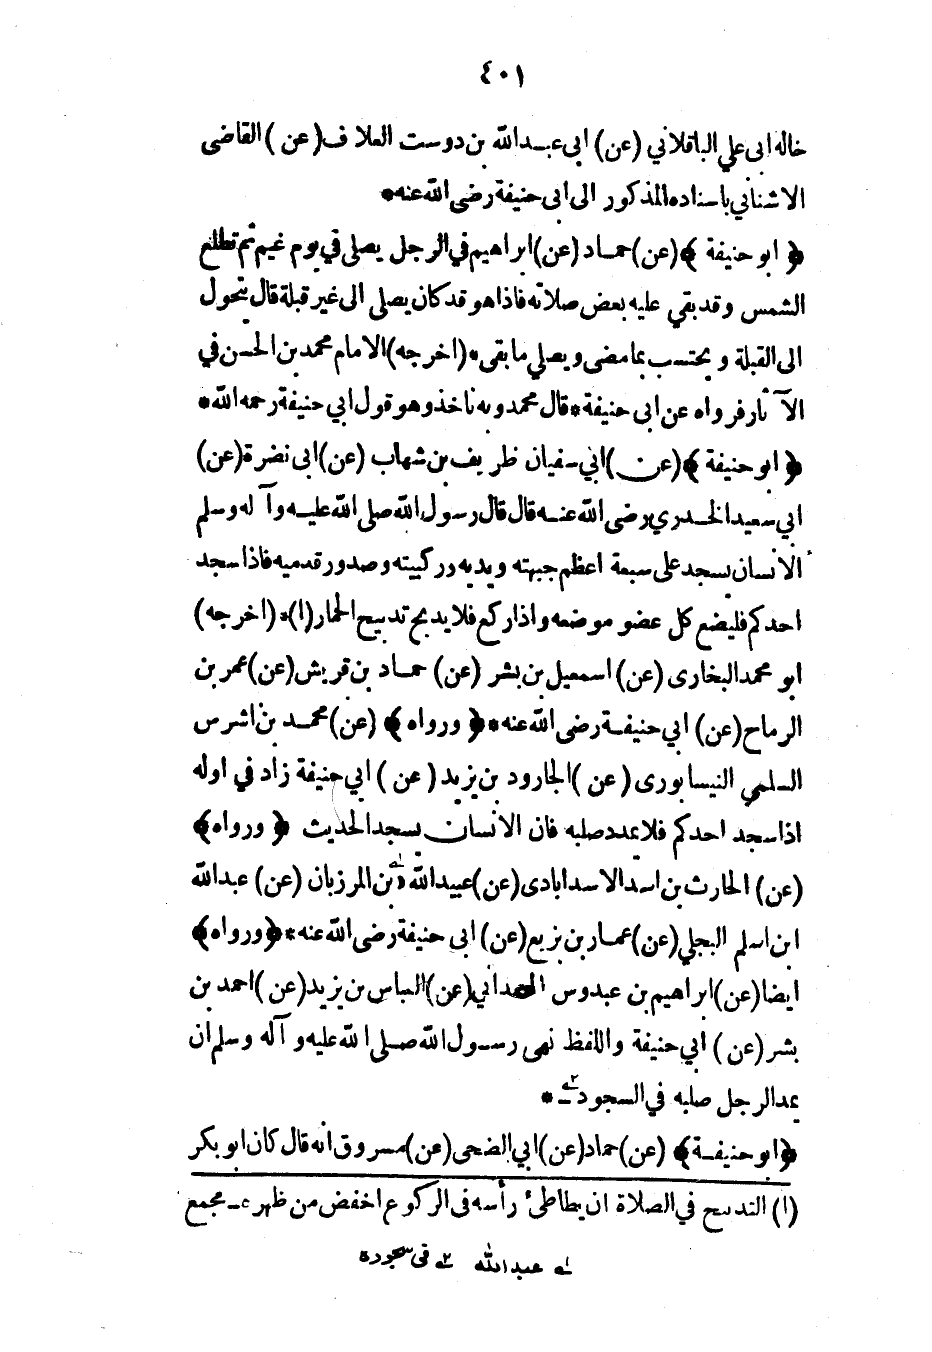 ٤٠١
خاله ابى علي الباقلاني (عن) ابى عبدالله بن دوست العلاف (عن) القاضى
الاشناني باسناده المذكور الى ابى حنيفة رضى الله عنه*
﴿ ابو حنيفة ﴾ (عن) حماد (عن) ابراهيم في الرجل يصلى في يوم غيم ثم تطلع
الشمس وقد بقي عليه بعض صلاته فاذا هو قد كان يصلى الى غير قبلة قال يتحول
الى القبلة و يحتسب بما مضى و يصلي ما بقى * (اخرجه) الامام محمد بن الحسن في
الآثار فرواه عن ابى حنيفة * قال محمد وبه ناخذ وهو قول ابي حنيفة رحمه الله *
﴿ ابو حنيفة ﴾ (عن) ابي سفيان طريف بن شهاب (عن) ابى نضرة (عن)
ابي سعيد الخدري رضى الله عنه قال قال رسول الله صلى الله عليه وآله وسلم
الانسان يسجد على سبعة اعظم جبهته ويديه وركبيته وصدور قدميه فاذا سجد
احدكم فليضع كل عضو موضعه واذا ركع فلا يدبح تدبيح الحمار (١) * (اخرجه)
ابو محمد البخارى (عن) اسمعيل بن بشر (عن) حماد بن قريش (عن) عمر بن
الرماح (عن) ابي حنيفة رضى الله عنه * ﴿ ورواه ﴾ (عن) محمد بن اشرس
السلمي النيسابورى (عن) الجارود بن يزيد (عن) ابي حنيفة زاد في اوله
اذا سجد احدكم فلا يمدد صلبه فان الانسان يسجد الحديث ﴿ ورواه ﴾
(عن) الحارث بن اسد الاسدابادى (عن) عبيدالله ١ بن المرزبان (عن) عبدالله
ابن اسلم البجلي (عن) عمار بن بزيع (عن) ابى حنيفة رضى الله عنه * ﴿ ورواه ﴾
ايضا (عن) ابراهيم بن عبدوس الهمداني (عن) العباس بن يزيد (عن) احمد بن
بشر (عن) ابي حنيفة واللفظ نهى رسول الله صلى الله عليه وآله وسلم ان
يمد الرجل صلبه في السجود ٢ *
﴿ ابو حنيفة ﴾ (عن) حماد (عن) ابي الضحى (عن) مسروق انه قال كان ابو بكر
(١) التدبيح في الصلاة ان يطاطئ رأسه فى الركوع اخفض من ظهره - مجمع
١ عبدالله ٢ فى سجوده